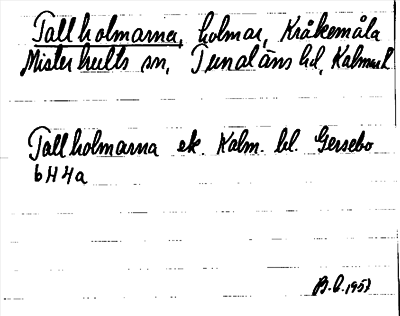 Tallholmarna, holmar, Kråkemåla
Misterhults sn, Tunaläns hd, Kalmar l.
Tallholmarna ek. Kalm. bl. Gersebo
6H4a
B.E. 1957